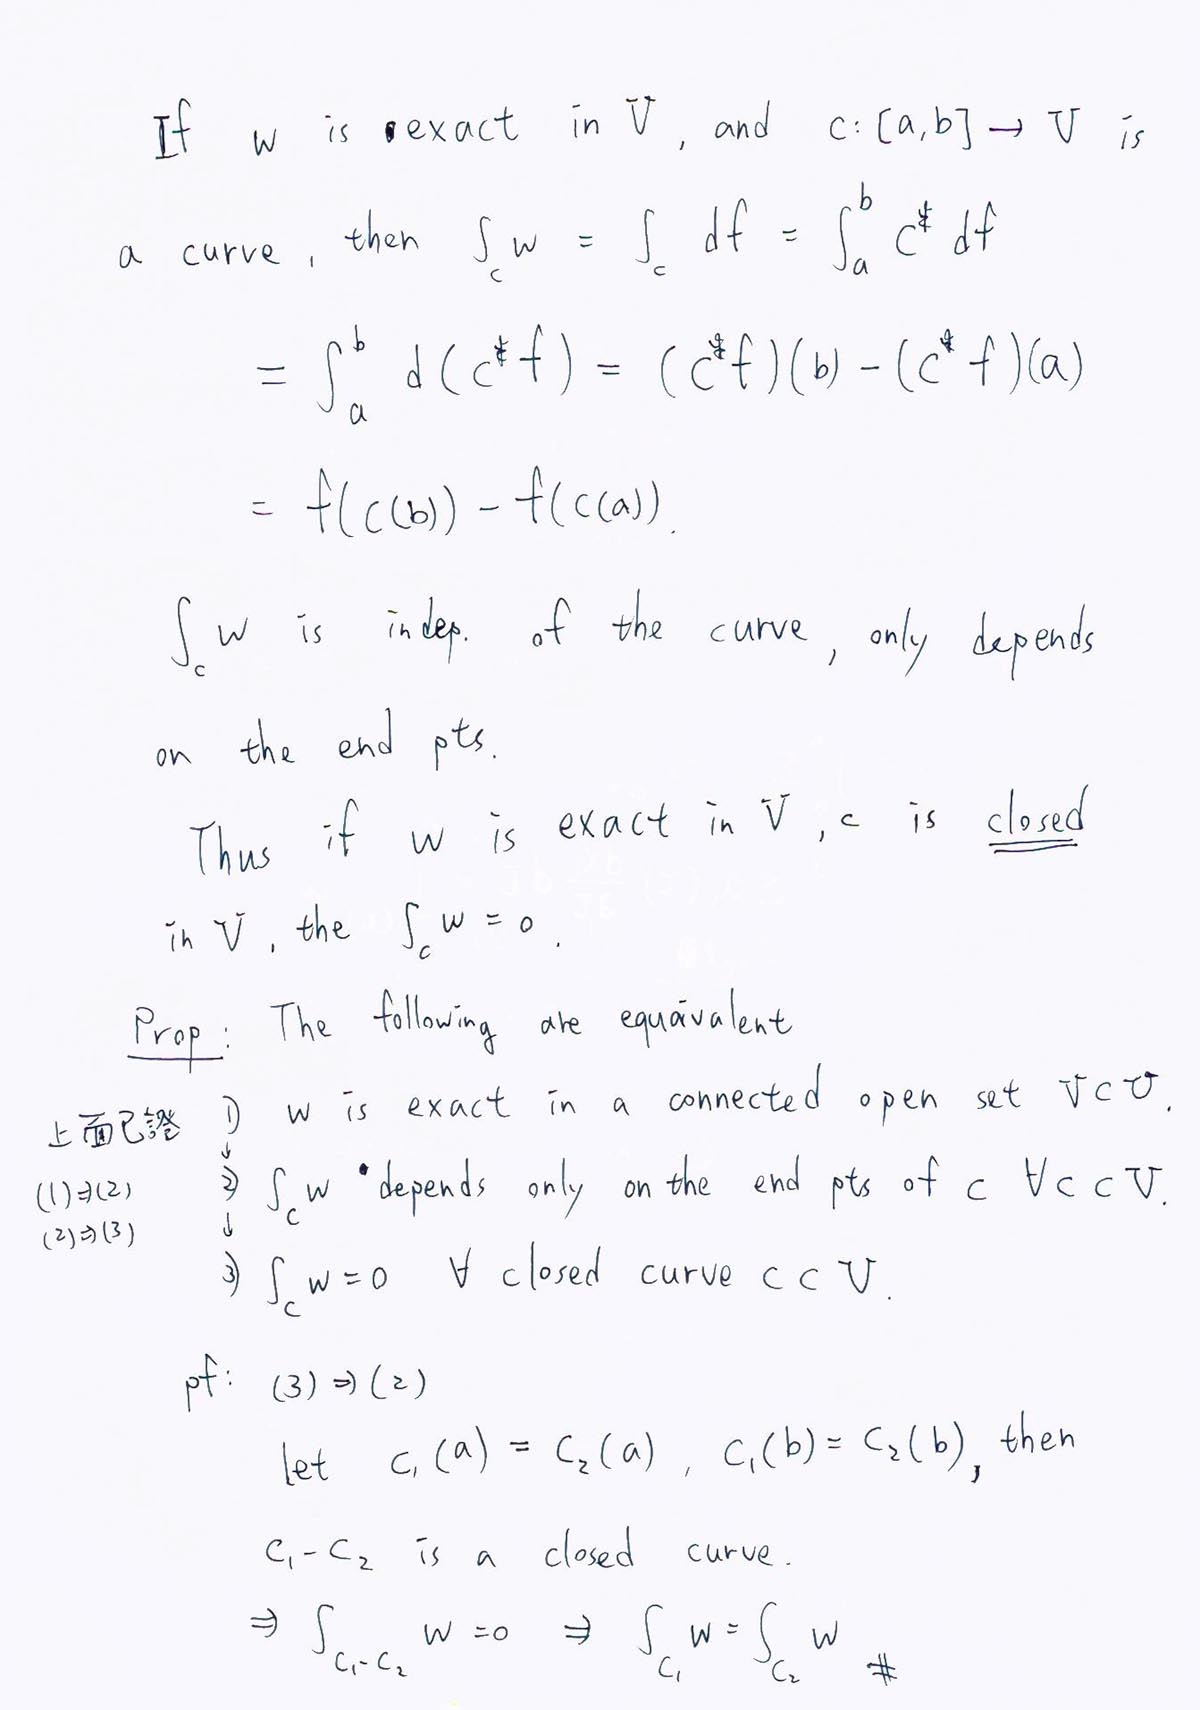 If w is exact in V, and c: [a,b] → V is
a curve, then ∫_c w = ∫_c df = ∫_a^b c* df
= ∫_a^b d(c*f) = (c*f)(b) - (c*f)(a)
= f(c(b)) - f(c(a)).
∫_c w is indep. of the curve, only depends
on the end pts.
Thus if w is exact in V, c is closed
in V, the ∫_c w = 0.
Prop: The following are equaivalent
上面已證 1) w is exact in a connected open set V⊂U.
↓
(1)⇒(2) 2) ∫_c w depends only on the end pts of c ∀c⊂V.
(2)⇒(3) ↓
3) ∫_c w = 0 ∀ closed curve c⊂V.
pf: (3)⇒(2)
let c₁(a) = c₂(a), c₁(b) = c₂(b), then
c₁-c₂ is a closed curve.
⇒ ∫_{c₁-c₂} w = 0 ⇒ ∫_{c₁} w = ∫_{c₂} w #